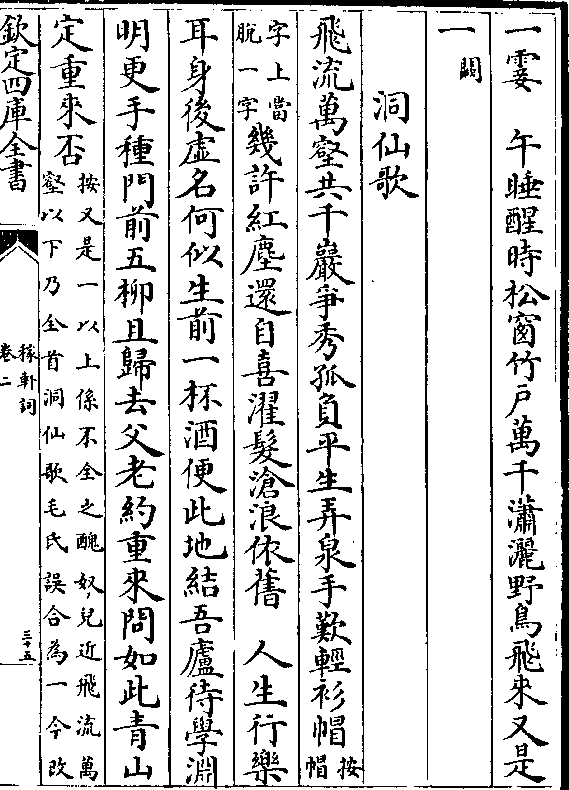 一霎　午睡醒時松窗竹戸萬千瀟灑野鳥飛來又是
一闕
洞仙歌
飛流萬壑共千巖爭秀孤負平生弄泉手歎輕衫帽按帽
字上當脫一字幾許紅塵還自喜濯髮滄浪依舊　人生行樂
耳身後虛名何似生前一杯酒便此地結吾廬待學淵
明更手種門前五柳且歸去父老約重來問如此青山
定重來否按又是一以上係不全之醜奴兒近飛流萬壑以下乃全首洞仙歌毛氏誤合為一今改
欽定四庫全書
稼軒詞
卷二
三十五